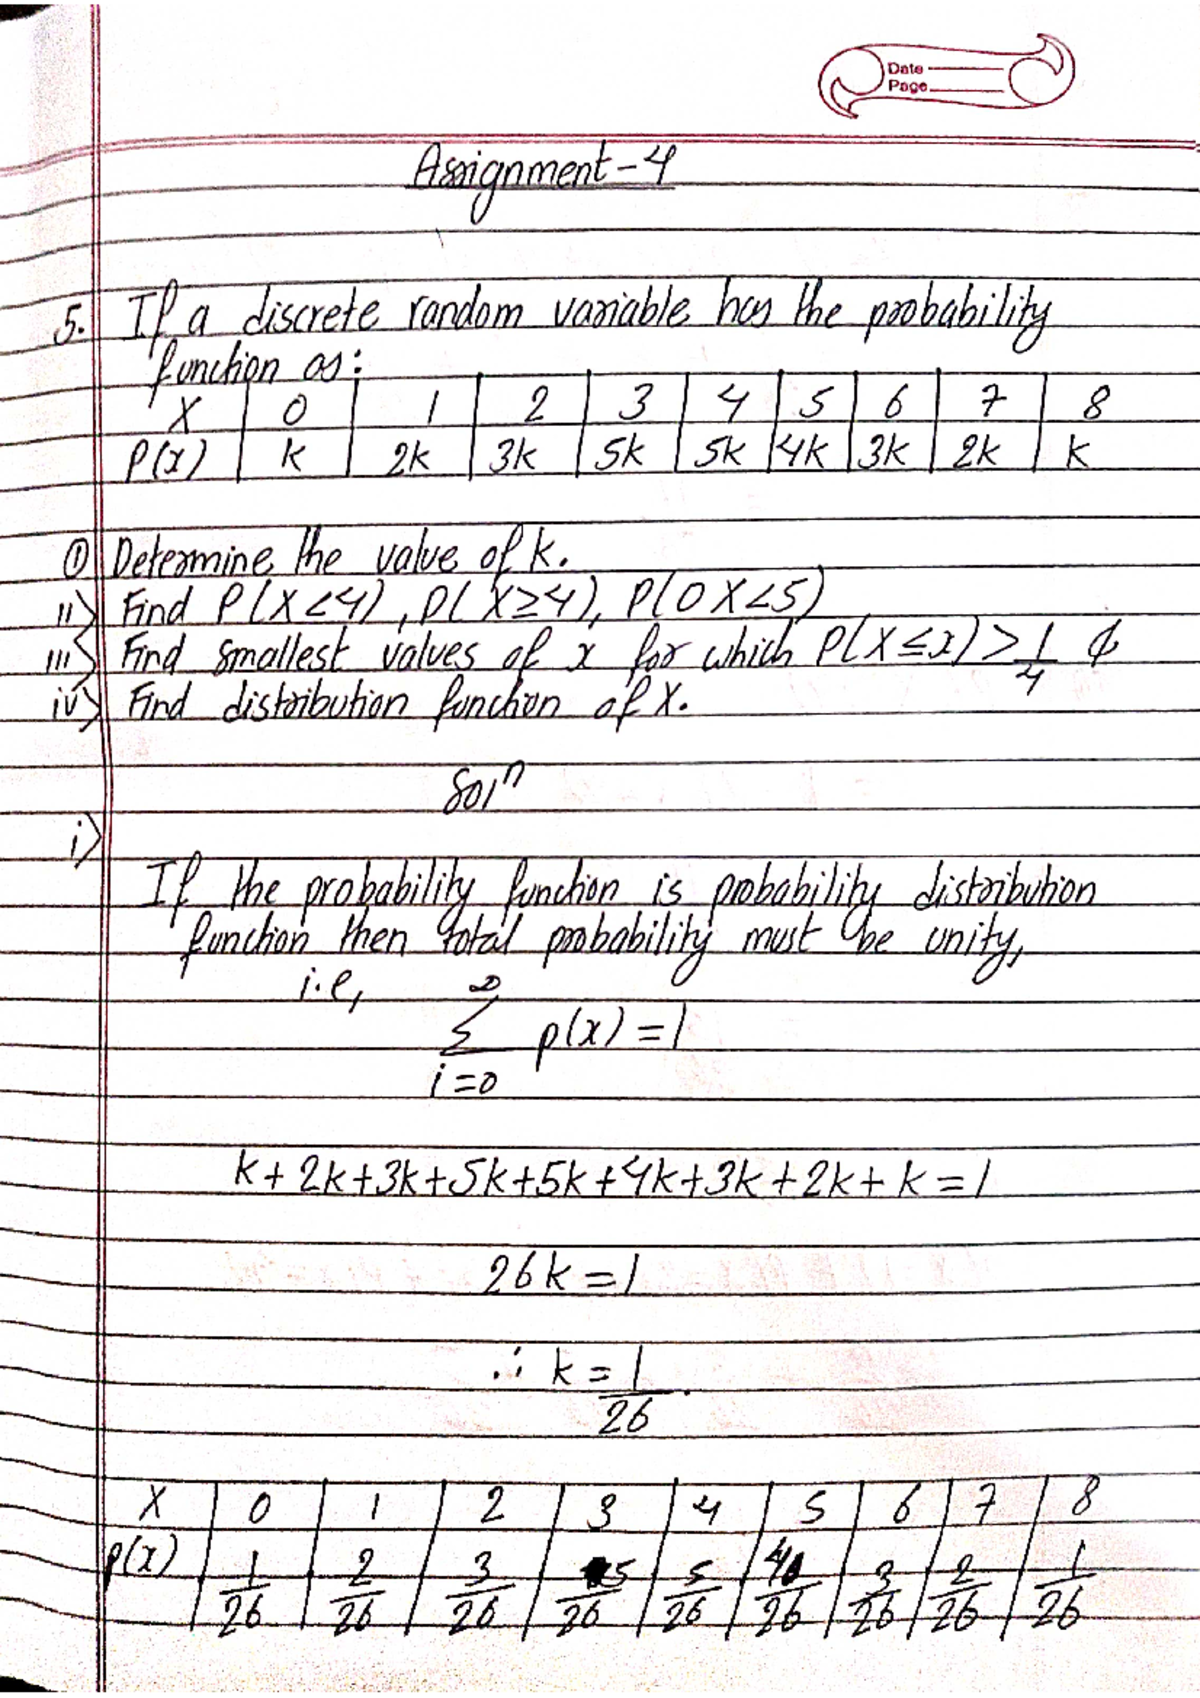 Date
Page
Assignment-4
5. If a discrete random variable has the probability
function as:
X 0 1 2 3 4 5 6 7 8
P(x) k 2k 3k 5k 5k 4k 3k 2k k
① Determine the value of k.
ii) Find P(X<4), P(X≥4), P(0 X<5)
iii) Find smallest values of x for which P(X≤x)>1/4
iv) Find distribution function of X.
Solⁿ
i)
If the probability function is probability distribution
function then total probability must be unity,
i.e, ∞
Σ p(x)=1
i=0
k+2k+3k+5k+5k+4k+3k+2k+k=1
26k=1
∴ k=1/26.
X 0 1 2 3 4 5 6 7 8
p(x) 1/26 2/26 3/26 5/26 5/26 4/26 3/26 2/26 1/26